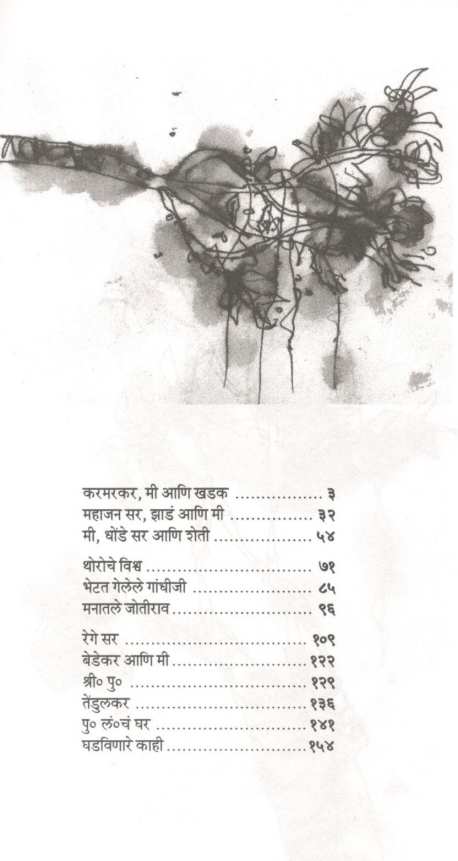 करमरकर, मी आणि खडक ................. ३
महाजन सर, झाडं आणि मी ................ ३२
मी, धोंडे सर आणि शेती ................... ५४
थोरोचे विश्व ................................ ७१
भेटत गेलेले गांधीजी ....................... ८५
मनातले जोतीराव .......................... ९६
रेगे सर ................................... १०९
बेडेकर आणि मी .......................... १२२
श्री० पु० .................................. १२९
तेंडुलकर .................................. १३६
पु० लं०चं घर ............................. १४१
घडविणारे काही ........................... १५४